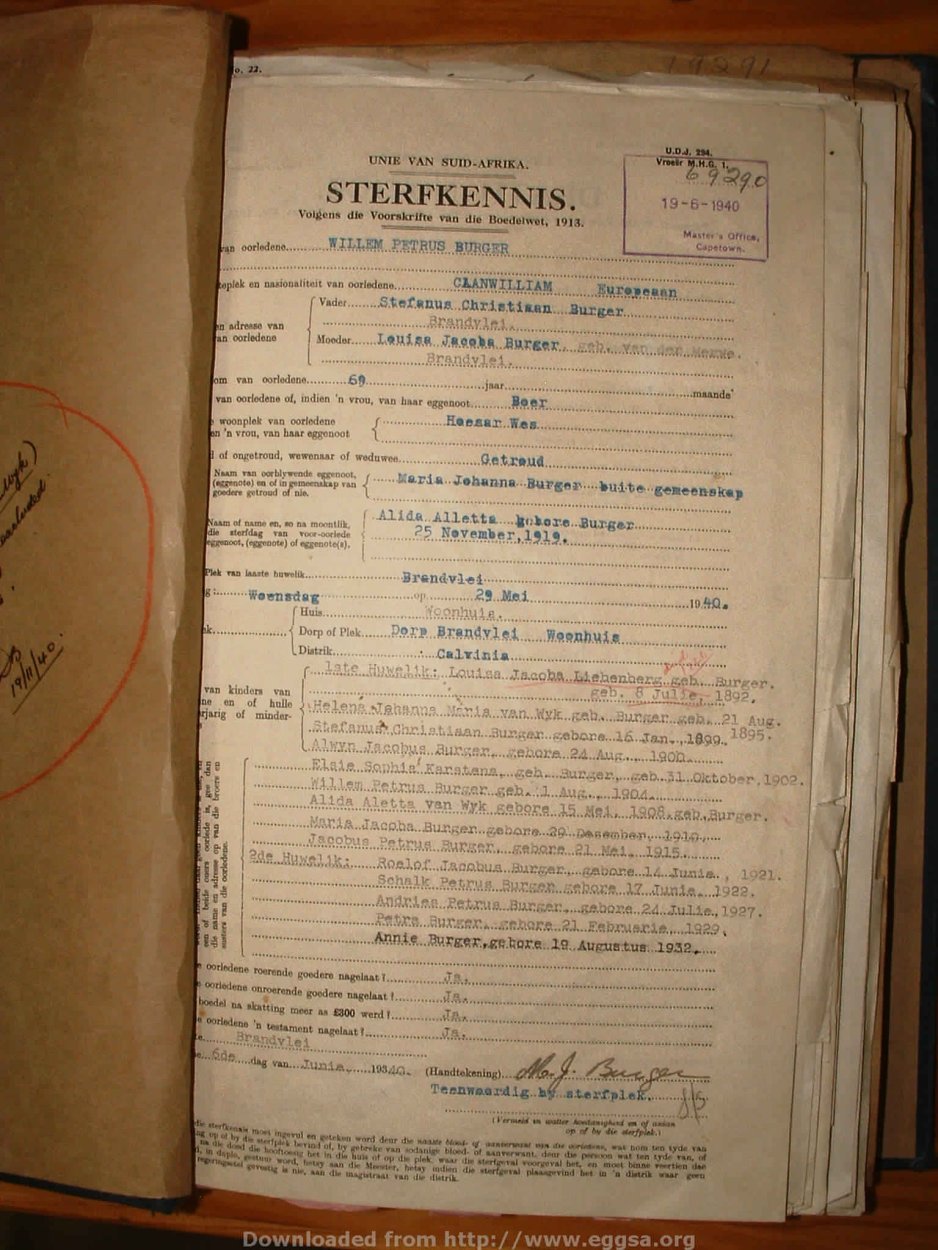 o. 22.
19291
U.D.J. 294.
Vroeër M.H.G. 1.
69290
19-6-1940
Master's Office,
Capetown.
UNIE VAN SUID-AFRIKA.
STERFKENNIS.
Volgens die Voorskrifte van die Boedelwet, 1913.
van oorledene WILLEM PETRUS BURGER
teplek en nasionaliteit van oorledene CLANWILLIAM European
en adresse van
van oorledene
Vader Stefanus Christiaan Burger
Brandvlei.
Moeder Louisa Jacoba Burger, geb. van der Merwe.
Brandvlei.
om van oorledene 69 jaar maande
van oorledene of, indien 'n vrou, van haar eggenoot Boer
e woonplek van oorledene
en 'n vrou, van haar eggenoot
Hoesar Wes
d of ongetroud, wewenaar of weduwee Getroud
Naam van oorblywende eggenoot,
(eggenote) en of in gemeenskap van
goedere getroud of nie.
Maria Johanna Burger buite gemeenskap
Naam of name en, so na moontlik,
die sterfdag van voor-oorlede
eggenoot, (eggenote) of eggenote(s).
Alida Alletta gebore Burger
25 November, 1919.
Plek van laaste huwelik Brandvlei
g: Woensdag op 29 Mei 1940.
ek
Huis Woonhuis.
Dorp of Plek Dorp Brandvlei Woonhuis
Distrik Calvinia
van kinders van
ne en of hulle
rjarig of minder-
1ste Huwelik: Louisa Jacoba Liebenberg geb. Burger.
geb. 8 Julie, 1892.
Helena Johanna Maria van Wyk geb. Burger geb. 21 Aug.
1895.
Stefanus Christiaan Burger gebore 16 Jan., 1899.
Alwyn Jacobus Burger, gebore 24 Aug., 1900.
Elsie Sophia Karstens, geb. Burger, geb. 31 Oktober, 1902.
Willem Petrus Burger geb. 1 Aug., 1904.
Alida Aletta van Wyk gebore 15 Mei, 1908. geb. Burger.
Maria Jacoba Burger gebore 29 Desember, 1910.
Jacobus Petrus Burger, gebore 21 Mei, 1915.
2de Huwelik: Roelof Jacobus Burger, gebore 14 Junie, 1921.
Schalk Petrus Burger gebore 17 Junie, 1922.
Andries Petrus Burger, gebore 24 Julie, 1927.
Petra Burger, gebore 21 Februarie, 1929.
Annie Burger, gebore 19 Augustus 1932.
een of beide ouers oorlede is, gee dan
die name en adresse op van die broers en
susters van die oorledene.
e oorledene roerende goedere nagelaat? Ja.
e oorledene onroerende goedere nagelaat? Ja.
boedel na skatting meer as £300 werd? Ja.
e oorledene 'n testament nagelaat? Ja.
te Brandvlei
ie 6de dag van Junie 1940. (Handtekening) M. J. Burger
Teenwoordig by sterfplek.
(Vermeld in watter hoedanigheid en of aanwesig
op of by die sterfplek.)
die sterfkennis moet ingevul en geteken word deur die naaste bloed- of aanverwant van die oorledene, wat ten tyde van
19/11/40.
Downloaded from http://www.eggsa.org